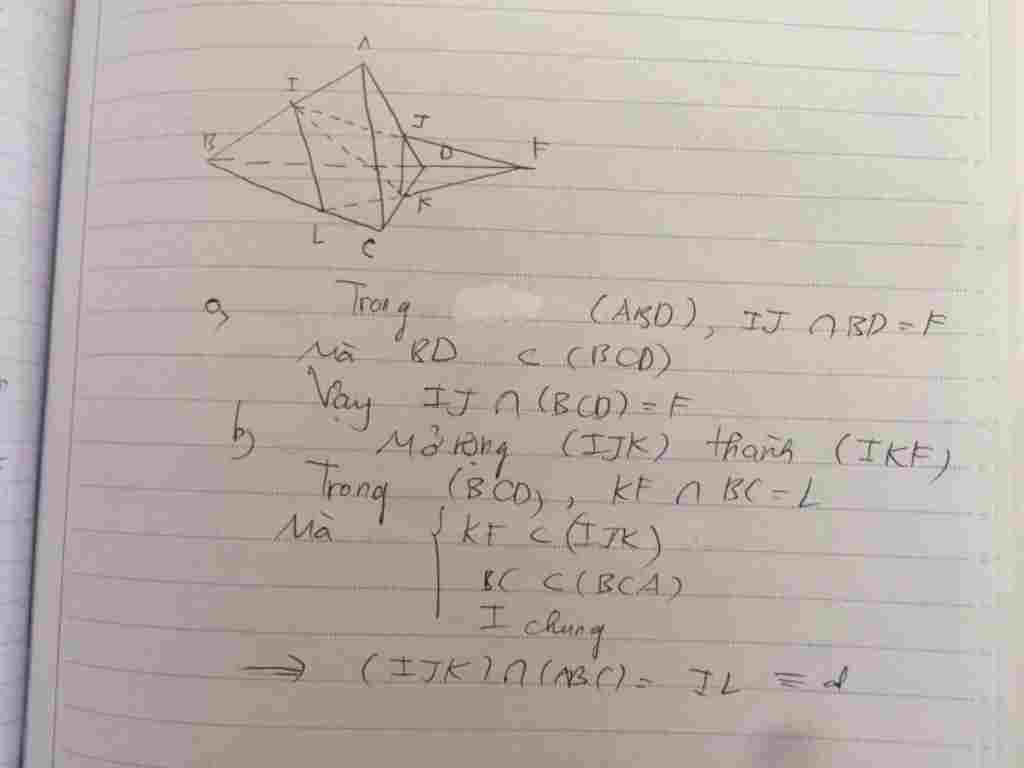 A
I
J
B
D
F
K
L
C
a, Trong (ABD), IJ ∩ BD = F
Mà BD ⊂ (BCD)
Vậy IJ ∩ (BCD) = F
b, Mở rộng (IJK) thành (IKF)
Trong (BCD), KF ∩ BC = L
Mà { KF ⊂ (IJK)
BC ⊂ (BCA)
I chung
⇒ (IJK) ∩ (ABC) = IL ≡ d